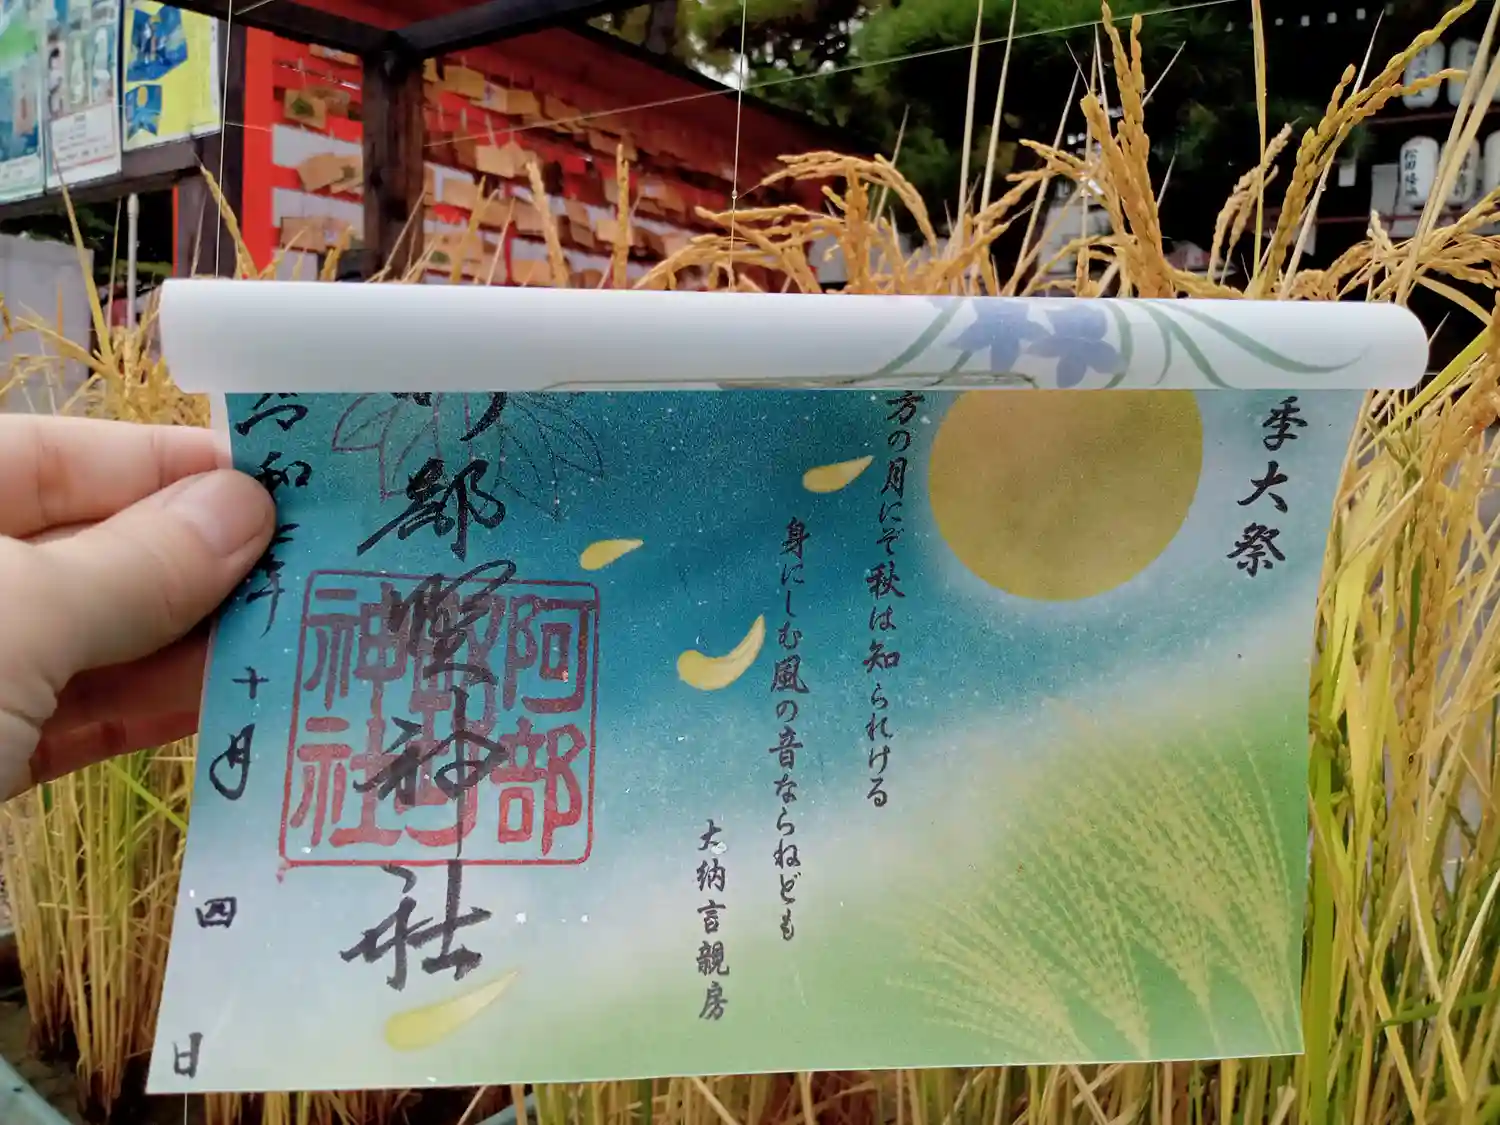 季大祭
方の月にぞ秋は知られける
身にしむ風の音ならねども
大納言親房
部野神社
阿部
野
神社
和
年
十月
四
日